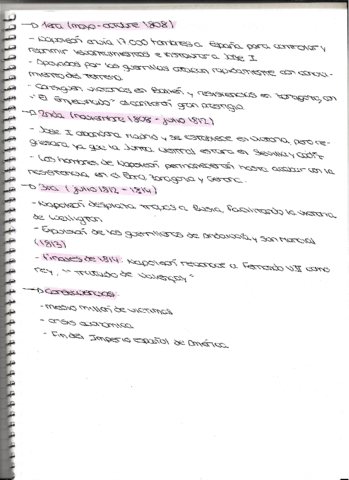 → 1era (mayo - octubre 1808)
- Napoleón envía 17.000 hombres a España para controlar y
reprimir levantamientos e instaurar a José I.
- Apoyados por las guerrillas atacan rápidamente con conoci-
miento del terreno.
- Consiguen victorias en Bailén y resistencias en Zaragoza, con
"El empecinado" alcanzaron gran prestigio
→ 2nda (noviembre 1808 - julio 1812)
- José I abandona Madrid y se establece en Vitoria, pero re-
gresará ya que la Junta Central estará en Sevilla y Cádiz
- Los hombres de Napoleón permanecerán hasta acabar con la
resistencia en Zaragoza y Gerona.
→ 3era (julio 1812 - 1814)
- Napoleón desplaza tropas a Rusia, facilitando la victoria
de Wellington.
- Expulsión de los guerrilleros de Andalucía y San Marcial
(1813)
- Finales de 1814: Napoleón reconoce a Fernando VII como
rey, "Tratado de Valençay"
→ Consecuencias:
- medio millón de víctimas
- crisis económica
- Fin del Imperio español de América.